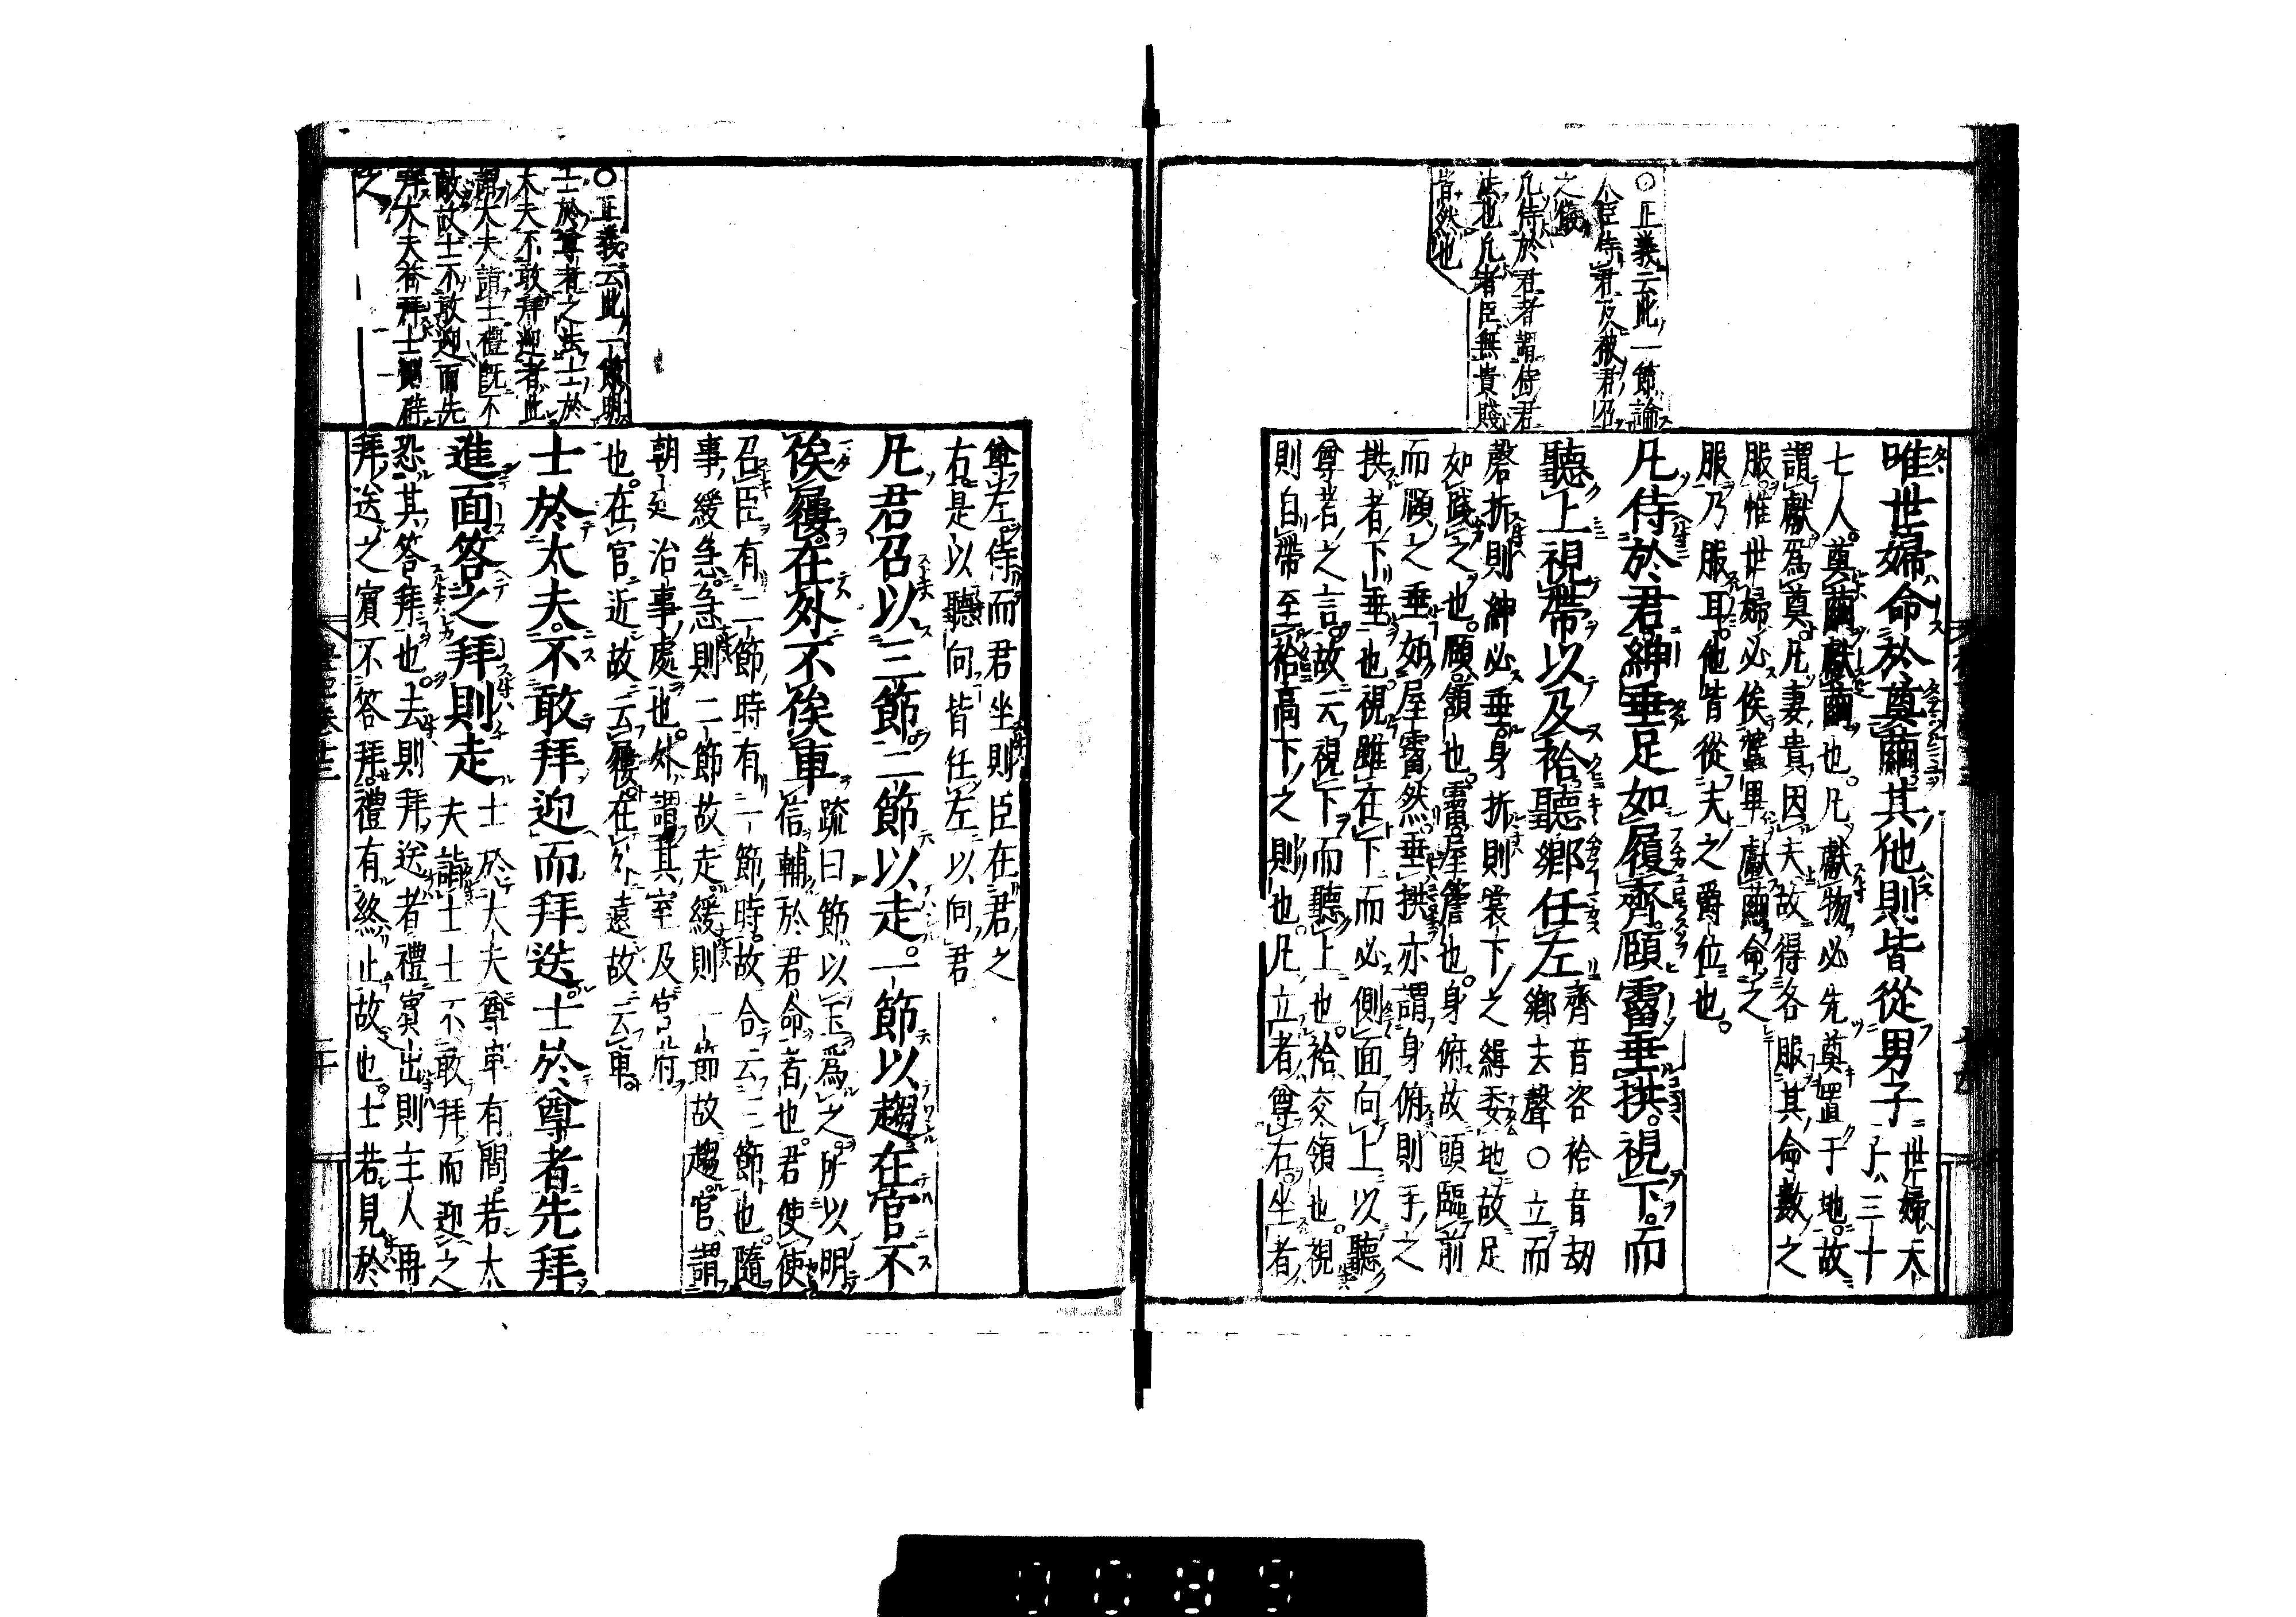 ○正義云此一節論
人臣侍君及被君召
之儀
凡侍於君者謂侍君
法也凡者臣無貴賤
皆然也
唯世婦命於奠繭其他則皆從男子世婦天
子三十
七人奠繭獻繭也凡獻物必先奠置于地故
謂獻爲奠凡妻貴因夫故得各服其命數之
服惟世婦必俟蠶畢獻繭命之
服乃服耳他皆從夫之爵位也
凡侍於君紳垂足如履齊頤霤垂拱視下而
聽上視帶以及袷聽鄉任左齊音咨袷音劫
鄉去聲○立而
磬折則紳必垂身折則裳下之緝委地故足
如踐之也頤頷也霤屋簷也身俯故頭臨前
而頤之垂如屋霤然垂拱亦謂身俯則手之
拱者下垂也視雖在下而必側面向上以聽
尊者之言故云視下而聽上也袷交領也視
則自帶至袷高下之則也凡立者尊右坐者
尊左侍而君坐則臣在君之
右是以聽向皆任左以向君
凡君召以三節二節以走一節以趨在官不
俟屨在外不俟車疏曰節以玉爲之所以明
信輔於君命者也君使使
召臣有二節時有一節時故合云三節也隨
事緩急急則二節故走緩則一節故趨官謂
朝廷治事處也外謂其室及官府
也在官近故云屨在外遠故云車
士於大夫不敢拜迎而拜送士於尊者先拜
進面答之拜則走士於大夫尊卑有間若大
夫詣士士不敢拜而迎之
恐其答拜也去則拜送者禮賓出則主人再
拜送之賓不答拜禮有終止故也士若見於
○正義云此一節明
士於尊者之法士於
大夫不敢拜迎者此
謂大夫詣士禮既不
敵故士不敢迎而先
拜大夫答拜士則辟
之